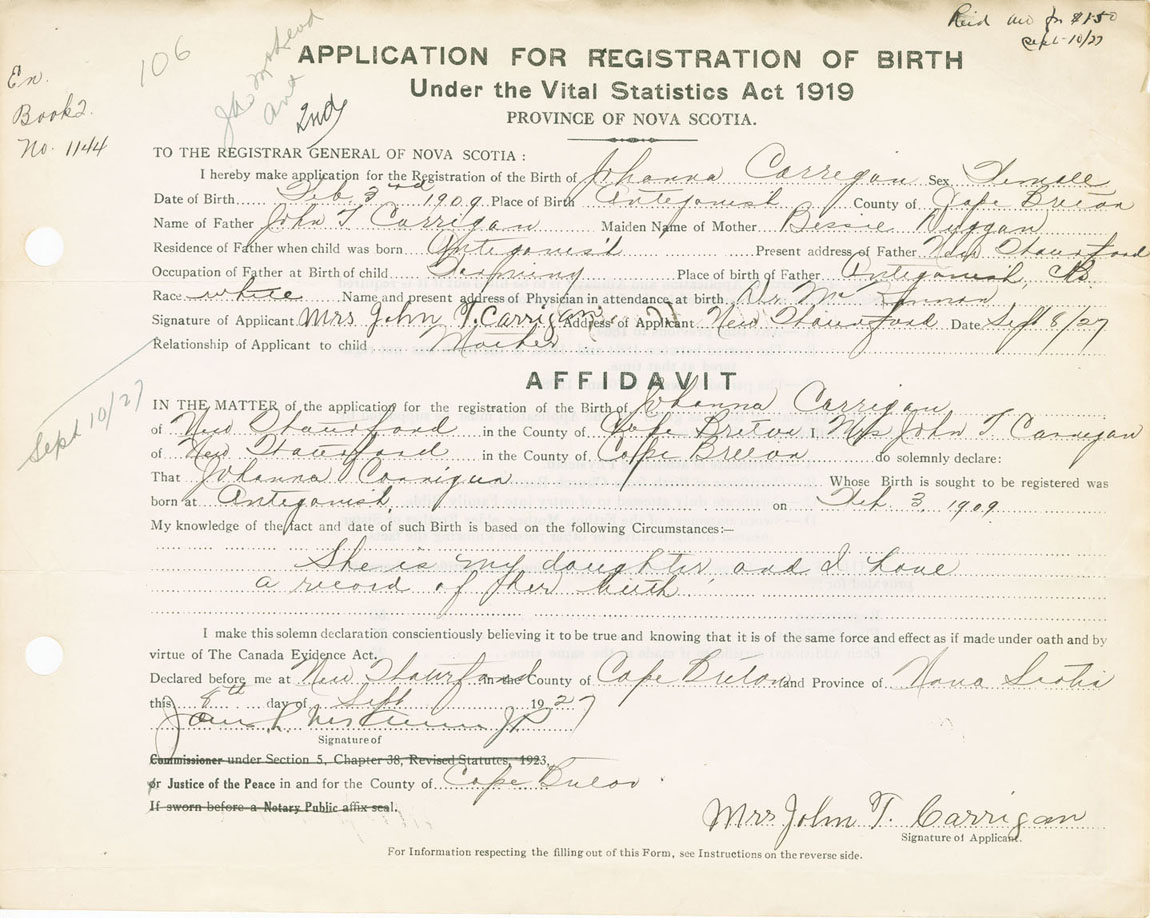 En. Book 2. No. 1144
106
2nd
$1.50
Sept 10/27
APPLICATION FOR REGISTRATION OF BIRTH
Under the Vital Statistics Act 1919
PROVINCE OF NOVA SCOTIA.
TO THE REGISTRAR GENERAL OF NOVA SCOTIA :
I hereby make application for the Registration of the Birth of Johanna Carrigan Sex Female
Date of Birth Feb. 3rd 1909 Place of Birth Antigonish County of Cape Breton
Name of Father John T Carrigan Maiden Name of Mother Bessie Duggan
Residence of Father when child was born Antigonish Present address of Father New
Occupation of Father at Birth of child Farming Place of birth of Father Antigonish, CB
Race white Name and present address of Physician in attendance at birth
Signature of Applicant Mrs John T. Carrigan Address of Applicant New Date Sept 8/27
Relationship of Applicant to child Mother
Sept 10/27
AFFIDAVIT
IN THE MATTER of the application for the registration of the Birth of Johanna Carrigan
of New in the County of Cape Breton I, Mrs John T Carrigan
of New in the County of Cape Breton do solemnly declare:
That Johanna Carrigan Whose Birth is sought to be registered was
born at Antigonish, on Feb. 3 1909
My knowledge of the fact and date of such Birth is based on the following Circumstances:—
She is my daughter and I have
a record of her birth
I make this solemn declaration conscientiously believing it to be true and knowing that it is of the same force and effect as if made under oath and by
virtue of The Canada Evidence Act.
Declared before me at New in the County of Cape Breton and Province of Nova Scotia
this 8th day of Sept 1927
JP
Signature of
Commissioner under Section 5, Chapter 38, Revised Statutes, 1923,
or Justice of the Peace in and for the County of Cape Breton
If sworn before a Notary Public affix seal.
Mrs John T. Carrigan
Signature of Applicant.
For Information respecting the filling out of this Form, see Instructions on the reverse side.